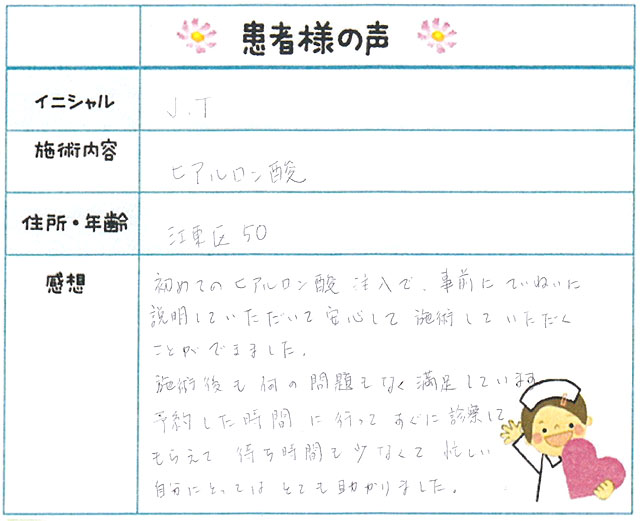 患者様の声
イニシャル
J.T
施術内容
ヒアルロン酸
住所・年齢
江東区 50
感想
初めてのヒアルロン酸注入で、事前にていねいに
説明していただいて安心して施術していただく
ことができました。
施術後も何の問題もなく満足しています
予約した時間に行ってすぐに診察して
もらえて待ち時間も少なくて忙しい
自分にとってはとても助かりました。